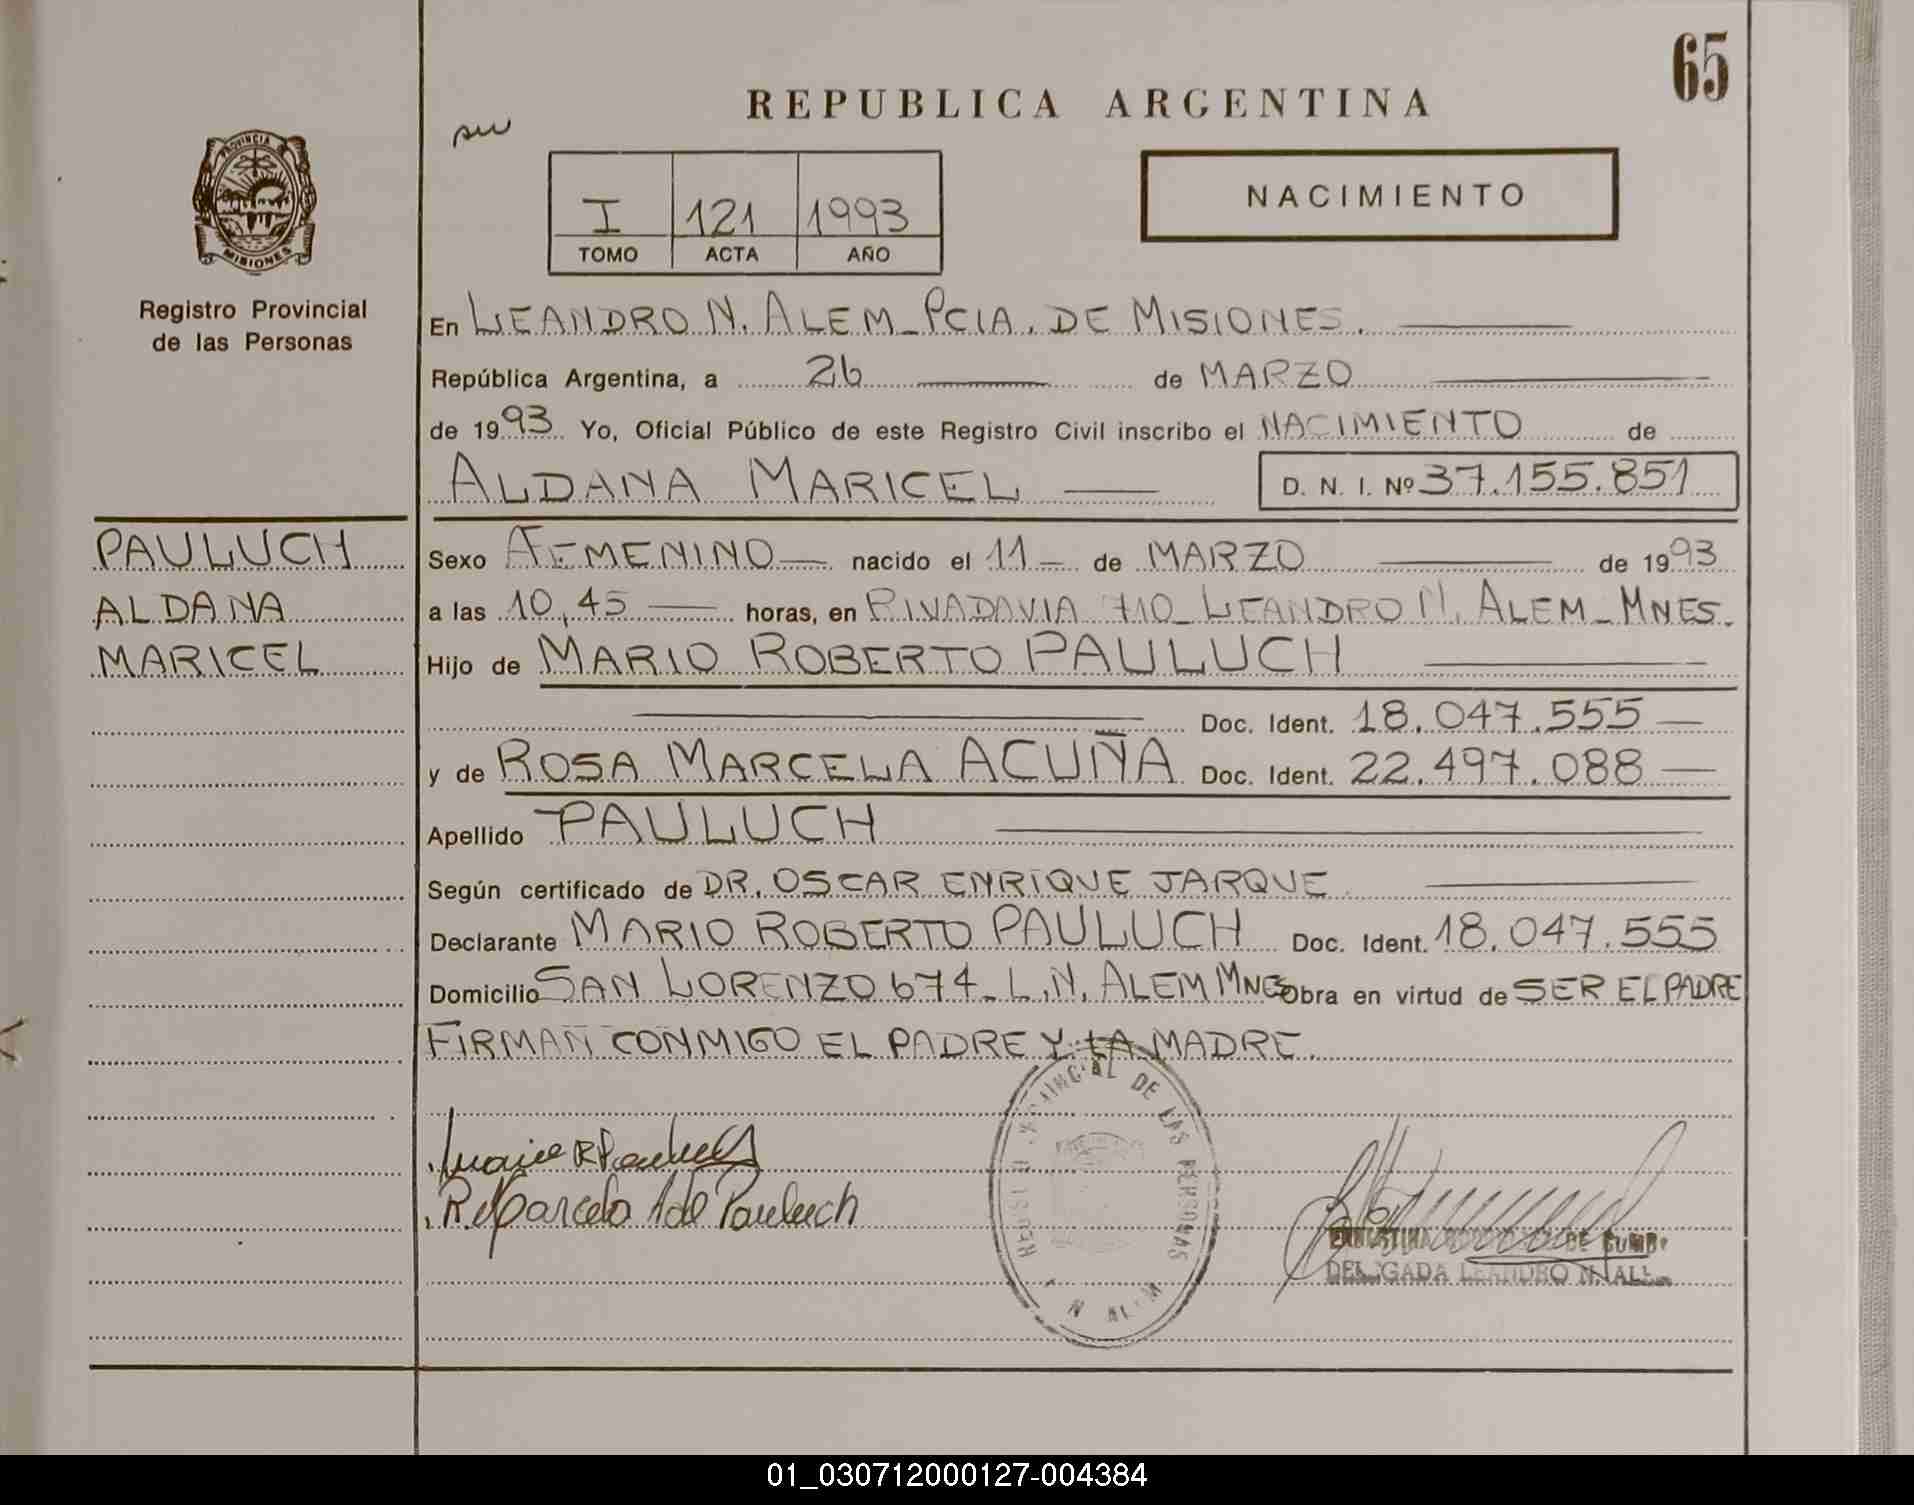 65
REPUBLICA ARGENTINA
PROVINCIA
MISIONES
Registro Provincial
de las Personas
NACIMIENTO
I 121 1993
TOMO ACTA AÑO
En LEANDRO N. ALEM_PCIA. DE MISIONES.
República Argentina, a 26 de MARZO
de 1993 Yo, Oficial Público de este Registro Civil inscribo el NACIMIENTO de
ALDANA MARICEL D. N. I. Nº 37.155.851
PAULUCH
ALDANA
MARICEL
Sexo FEMENINO nacido el 11 de MARZO de 1993
a las 10,45 horas, en RIVADAVIA 710_LEANDRO N. ALEM_MNES.
Hijo de MARIO ROBERTO PAULUCH
Doc. Ident. 18.047.555
y de ROSA MARCELA ACUÑA Doc. Ident. 22.497.088
Apellido PAULUCH
Según certificado de DR. OSCAR ENRIQUE JARQUE
Declarante MARIO ROBERTO PAULUCH Doc. Ident. 18.047.555
Domicilio SAN LORENZO 674_L.N. ALEM MNES Obra en virtud de SER EL PADRE
FIRMAN CONMIGO EL PADRE Y LA MADRE.
DE LAS PERSONAS
R Marcela A de Pauluch
DE
LEANDRO N.
01_030712000127-004384